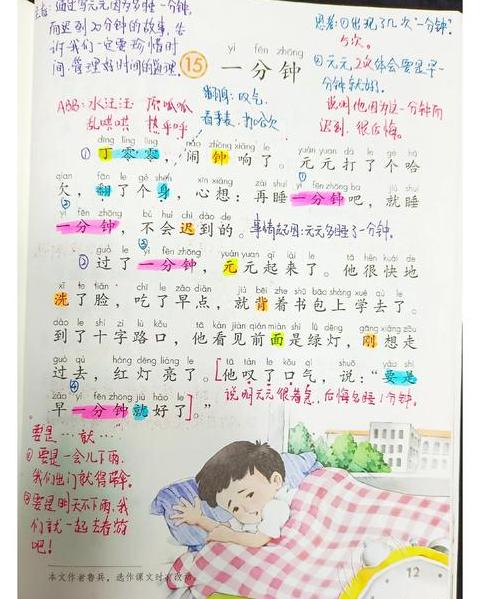 主旨：通过写元元因为多睡一分钟，
而迟到20分钟的故事，告
诉我们一定要珍惜时
间，管理好时间的道理。
思考：①出现了几次“一分钟”？
5次。
②元元2次体会要是早一
分钟就好，
说明他因为这一分钟而
迟到，很后悔。
yì fēn zhōng
15 一分钟
ABB：水汪汪 顶呱呱
乱哄哄 热乎乎
翻身：叹气、
看手表、打哈欠
dīng líng líng nào zhōng xiǎng le yuán yuán dǎ le gè hā
① 丁零零，闹钟响了。元元打了个哈
qian fān le gè shēn xīn xiǎng zài shuì yì fēn zhōng ba jiù shuì
欠，翻了个身，心想：再睡一分钟吧，就睡
②
yì fēn zhōng bú huì chí dào de
一分钟，不会迟到的。事情起因：元元多睡了一分钟。
③
guò le yì fēn zhōng yuán yuán qǐ lái le tā hěn kuài de
② 过了一分钟，元元起来了。他很快地
xǐ le liǎn chī le zǎo diǎn jiù bēi zhe shū bāo shàng xué qù le
洗了脸，吃了早点，就背着书包上学去了。
dào le shí zì lù kǒu tā kàn jiàn qián miàn shì lǜ dēng gāng xiǎng zǒu
到了十字路口，他看见前面是绿灯，刚想走
guò qù hóng dēng liàng le tā tàn le kǒu qì shuō yào shi
过去，红灯亮了。[他叹了口气，说：“要是
④ 说明元元很着急，后悔多睡1分钟。
zǎo yì fēn zhōng jiù hǎo le
早一分钟就好了]。”
要是……就……
①要是一会儿下雨，
我们出门就得带伞。
②要是明天不下雨，我
们就一起去春游
吧！
本文作者鲁兵，选作课文时有改动。
12